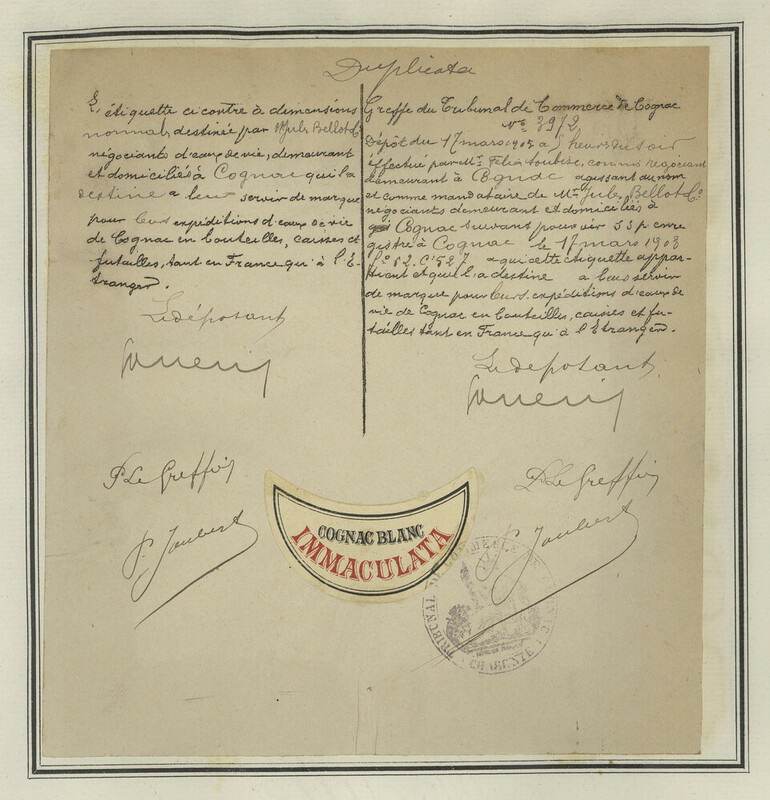 Duplicata
L'étiquette ci contre à dimensions
normal, destinée par Mr Jules Bellot & Co
négociants d'eaux de vie, demeurant
et domiciliés à Cognac qui l'a
destine a leur servoir de marque
pour leurs expéditions d'eaux de vie
de Cognac en bouteilles, caisses et
futailles, tant en France qu'à l'E-
tranger.
Le déposant
P. Le Greffier
P. Joubert
Greffe du Tribunal de Commerce de Cognac
No 3972
Dépôt du 17 mars à 5 heures du soir
effectué par Mr Félix commis négociant
demeurant à Cognac agissant au nom
et comme mandataire de Mr Jules Bellot & Co
négociants demeurant et domiciliés à
Cognac suivant pouvoir SSp enre
gistré à Cognac le 17 mars
Fo 82. Co 527 a qui cette étiquette appar-
tient et qui l'a destine a leur servoir
de marque pour leurs expéditions d'eaux de
vie de Cognac en bouteilles, caisses et fu-
tailles tant en France qu'à l'Etranger.
Le déposant
P. Le Greffier
P. Joubert
COGNAC BLANC
IMMACULATA
TRIBUNAL DE COMMERCE DE
CHARENTE